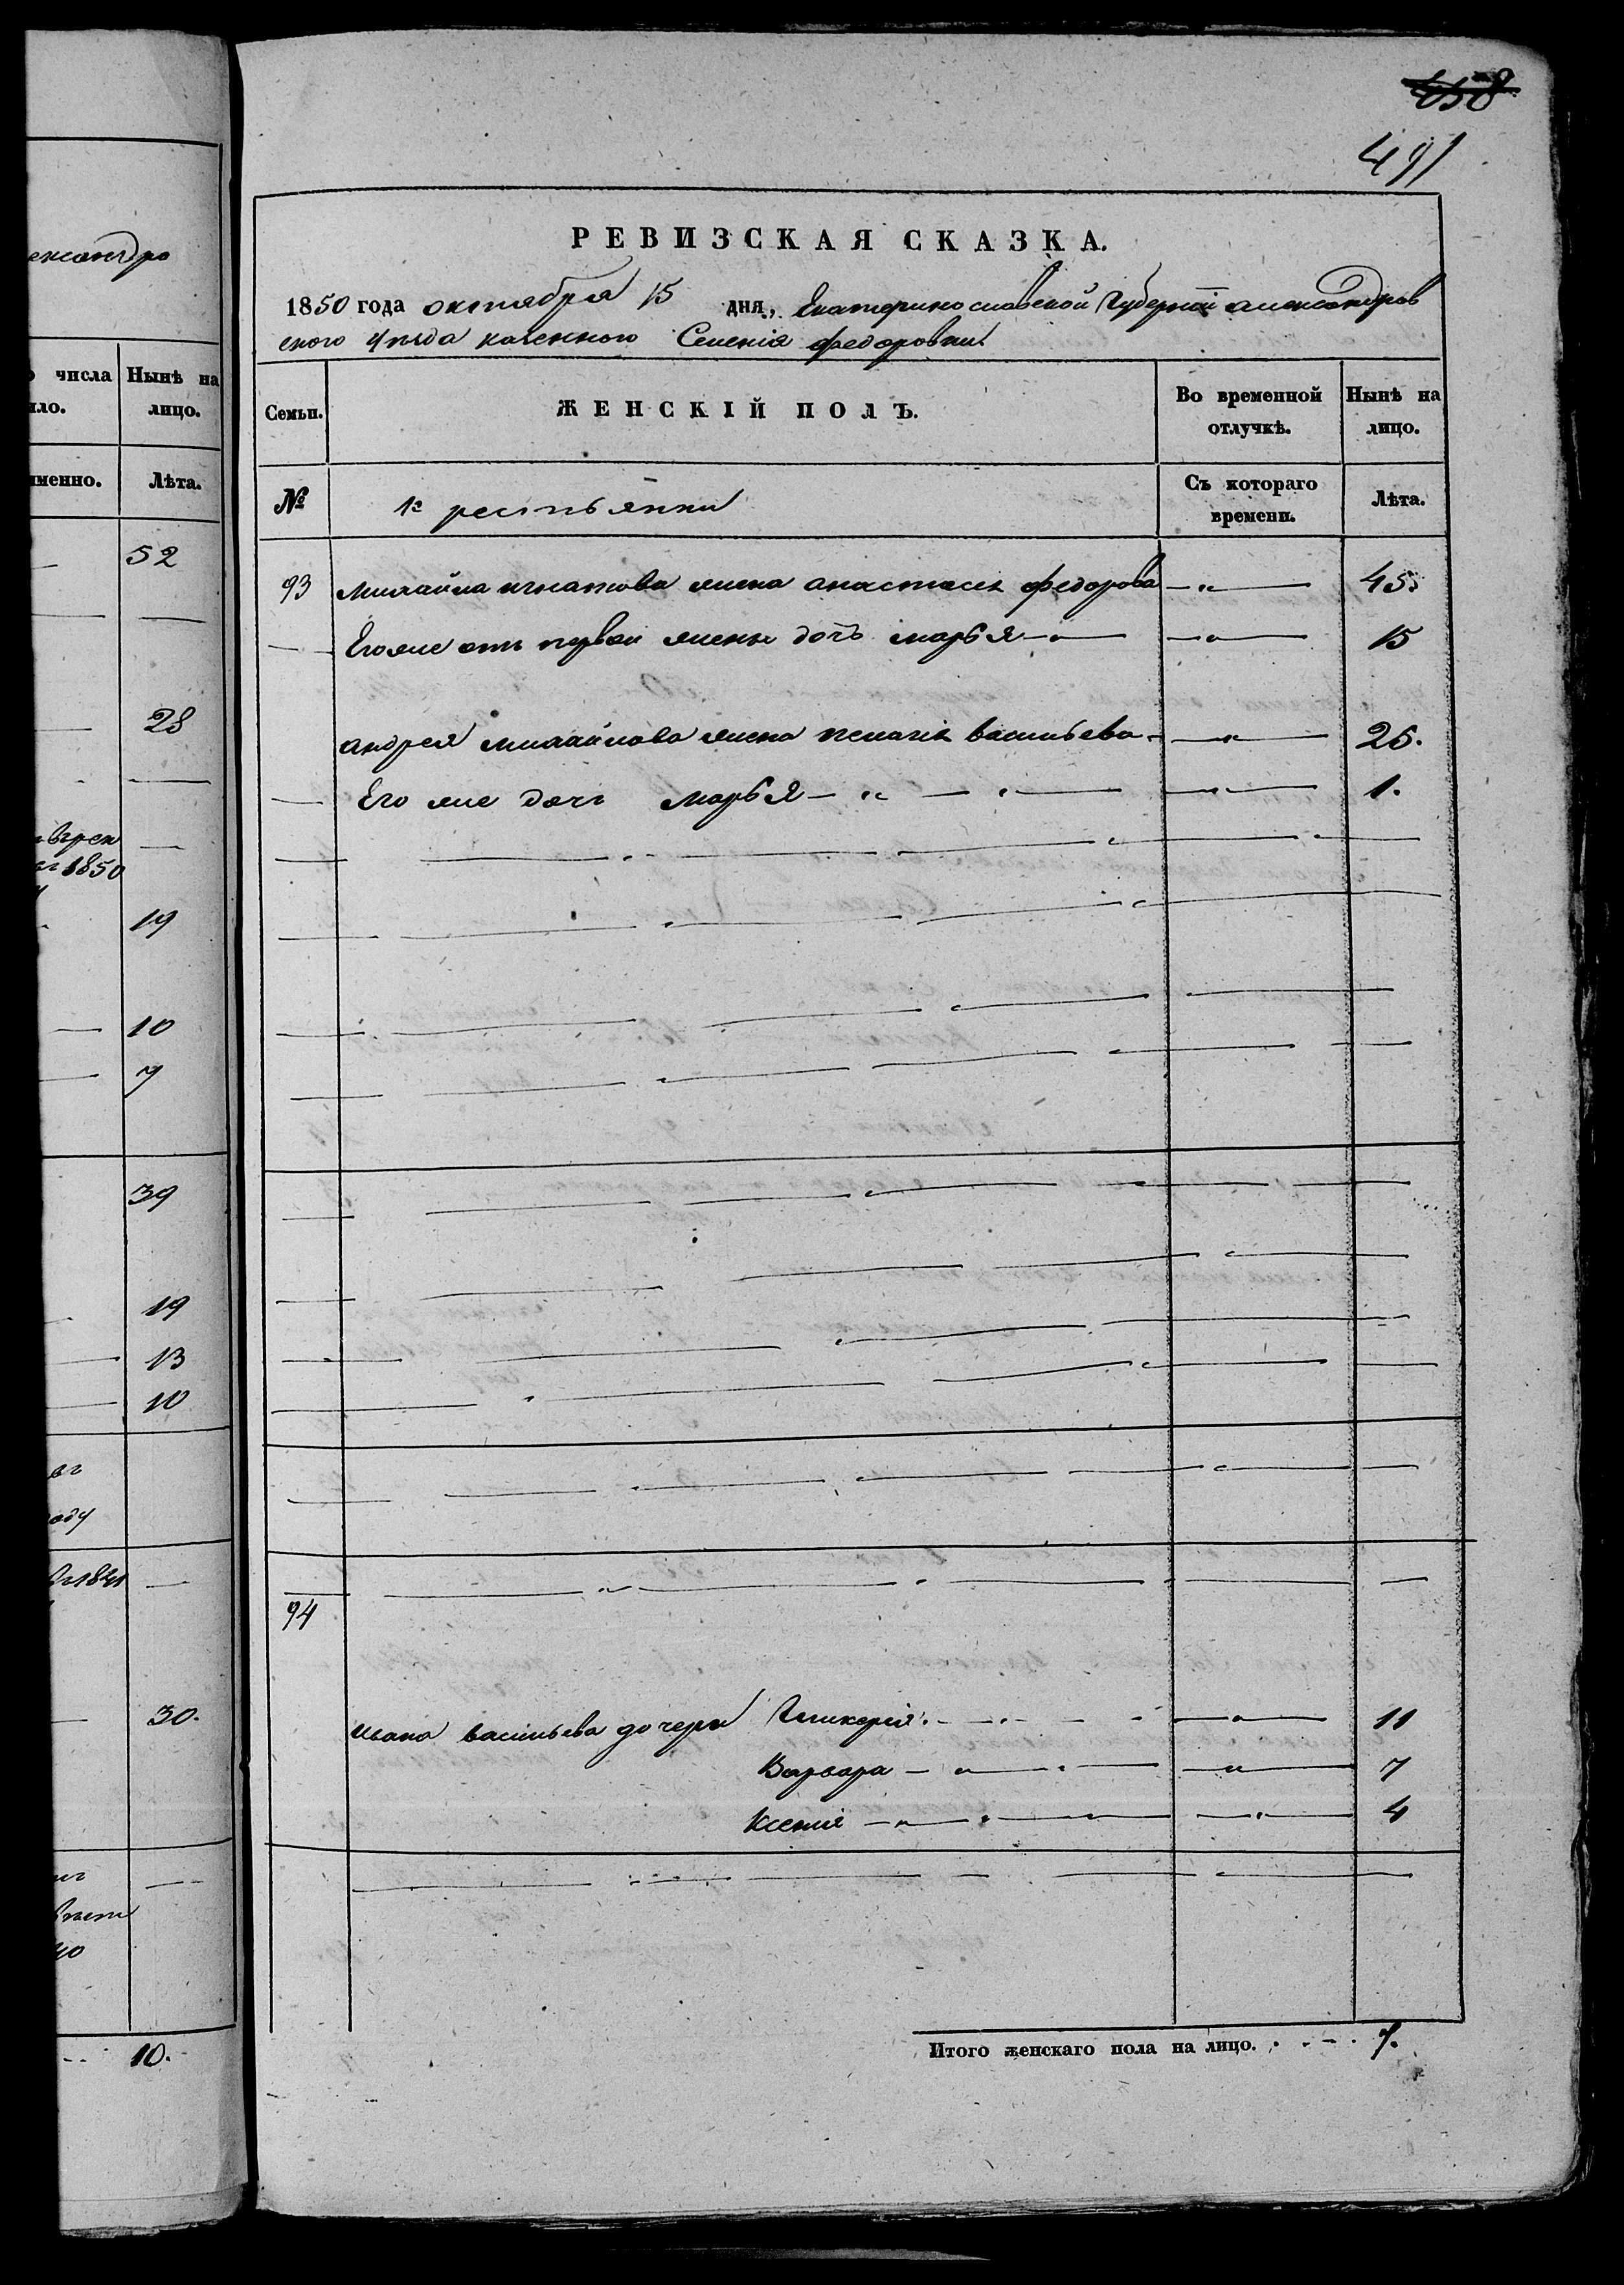 ександро
числа Нынѣ на
ило. лицо.
именно. Лѣта.
52
28
1850
19
10
7
39
19
13
10
оду
1841
30.
10.
458
491
РЕВИЗСКАЯ СКАЗКА.
1850 года октября 15 дня, Екатеринославской Губерніи александров
ского уѣзда казенного Селенія федоровки
Семьи. ЖЕНСКІЙ ПОЛЪ. Во временной отлучкѣ. Нынѣ на лицо.
№ крестьянки Съ котораго времени. Лѣта.
93 михайла игнатова жена анастасія федорова — „ — 45
— Его же отъ первой жены дочь марья — „ — — „ — 15
андрея михайлова жена пелагія васильева — „ — 26.
— Его же дочь марья — „ — „ — — „ — 1.
94
ивана васильева дочери Гликерія — „ — 11
Варвара — „ — — „ — 7
Ксенія — „ — „ — — „ — 4
Итого женскаго пола на лицо. 7.